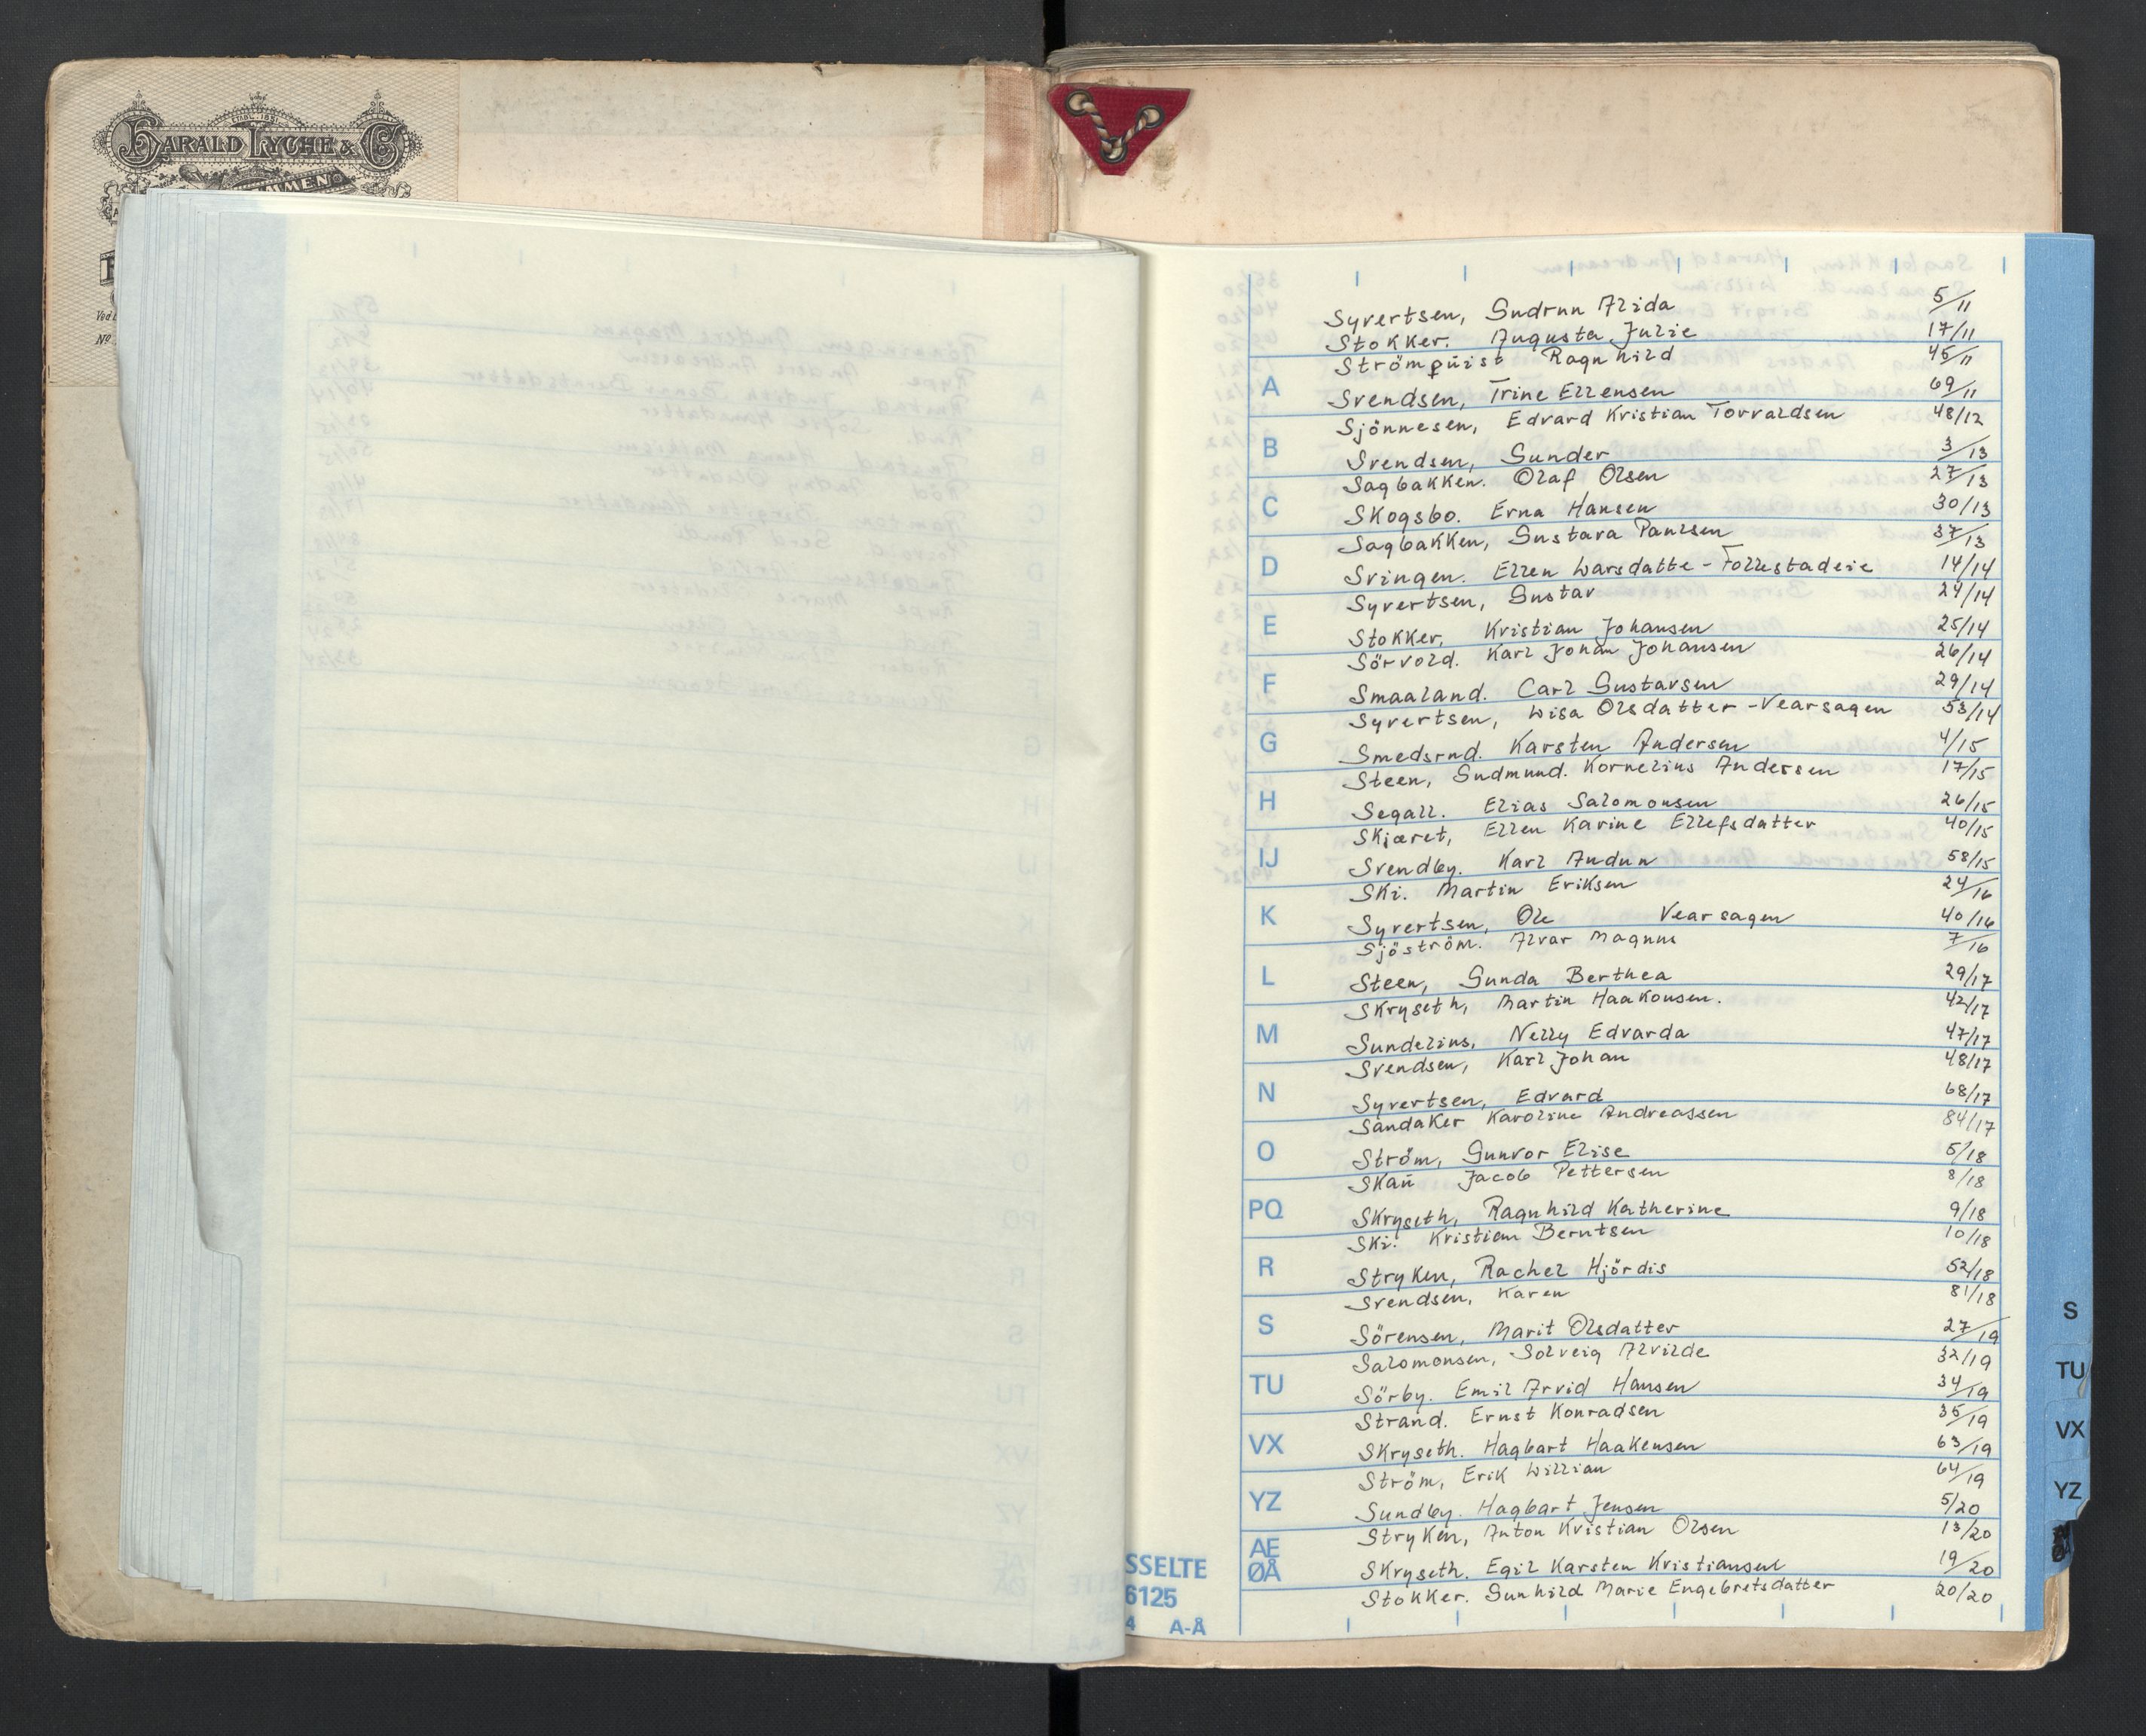 HARALD LYCHE & Co
Syvertsen, Gudrun Alida 5/11
Stokker. Augusta Julie 17/11
Strömquist Ragnhild 45/11
A
Svendsen, Trine Ellensen 69/11
Sjönnesen, Edvard Kristian Torvaldsen 48/12
B
Svendsen, Gunder 3/13
Sagbakken. Olaf Olsen 27/13
C
Skogsbo. Erna Hansen 30/13
Sagbakken, Gustava Paulsen 37/13
D
Svingen. Ellen Larsdatte - Follestadeie 14/14
Syvertsen, Gustav 24/14
E
Stokker, Kristian Johansen 25/14
Sörvold. Karl Johan Johansen 26/14
F
Smaaland. Carl Gustavsen 29/14
Syvertsen, Lisa Olsdatter - Vearsagen 53/14
G
Smedsrud. Karsten Andersen 4/15
Steen, Gudmund. Kornelius Andersen 17/15
H
Segall. Elias Salomonsen 26/15
Skjæret, Ellen Karine Ellefsdatter 40/15
IJ
Svendby. Karl Audun 58/15
Ski. Martin Eriksen 24/16
K
Syvertsen, Ole Vearsagen 40/16
Sjöström. Alvar Magnus 7/16
L
Steen, Gunda Berthea 29/17
Skryseth, Martin Haakonsen. 42/17
M
Sundelius, Nelly Edvarda 47/17
Svendsen, Karl Johan 48/17
N
Syvertsen, Edvard 68/17
Sandaker Karoline Andreassen 84/17
O
Ström, Gunvor Elise 5/18
Skaū Jacob Pettersen 8/18
PQ
Skryseth, Ragnhild Katherine 9/18
Ski. Kristian Berntsen 10/18
R
Stryken, Rachel Hjördis 52/18
Svendsen, Karen 81/18
S
Sörensen, Marit Olsdatter 27/19
Salomonsen, Solveig Alvilde 32/19
TU
Sörby. Emil Arvid Hansen 34/19
Strand. Ernst Konradsen 35/19
VX
Skryseth. Hagbart Haakensen 63/19
Ström, Erik Willian 64/19
YZ
Sundby. Hagbart Jensen 5/20
Stryken, Anton Kristian Olsen 13/20
AE
ØÅ
Skryseth. Egil Karsten Kristiansen 19/20
Stokker. Gunhild Marie Engebretsdatter 20/20
SSELTE
6125
4 A-Å
S
TU
VX
YZ